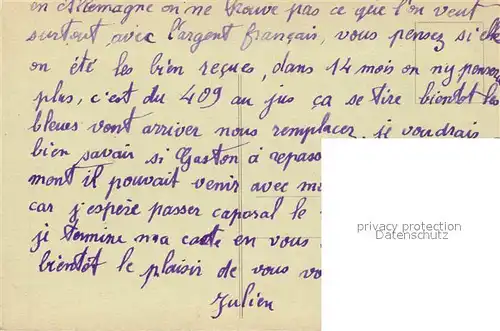 en Allemagne on ne trouve pas ce que l'on veut
surtout avec l'argent français, vous pensez si elles
on été les bien reçues, dans 14 mois on n'y pensera
plus, c'est du 409 au jus ça se tire bientôt les
bleues vont arriver nous remplacer, je voudrais
bien savoir si Gaston à repass
mont il pouvait venir avec m
car j'espère passer caporal le
je termine ma carte en vous
bientôt le plaisir de vous vo
Julien
privacy protection
Datenschutz